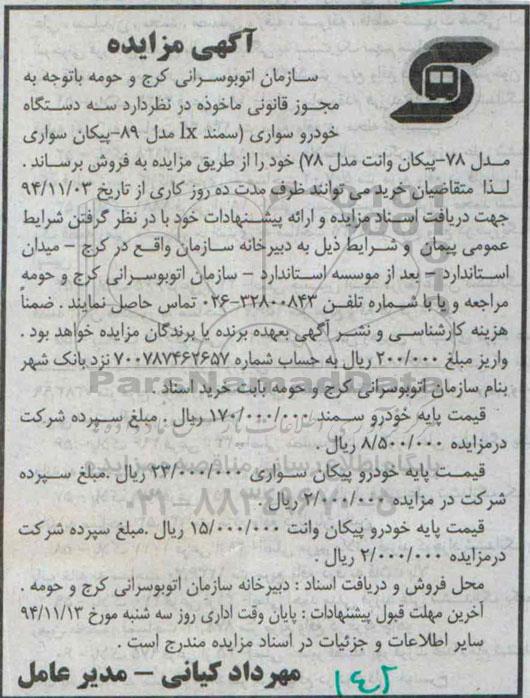 آگهی مزایده
سازمان اتوبوسرانی کرج و حومه باتوجه به
مجوز قانونی ماخوذه در نظردارد سه دستگاه
خودرو سواری (سمند lx مدل ۸۹-پیکان سواری
مدل ۷۸-پیکان وانت مدل ۷۸) خود را از طریق مزایده به فروش برساند .
لذا متقاضیان خرید می توانند ظرف مدت ده روز کاری از تاریخ ۹۴/۱۱/۰۳
جهت دریافت اسناد مزایده و ارائه پیشنهادات خود با در نظر گرفتن شرایط
عمومی پیمان و شرایط ذیل به دبیرخانه سازمان واقع در کرج - میدان
استاندارد - بعد از موسسه استاندارد - سازمان اتوبوسرانی کرج و حومه
مراجعه و یا با شماره تلفن ۳۲۸۰۰۸۴۳-۰۲۶ تماس حاصل نمایند . ضمناً
هزینه کارشناسی و نشر آگهی بعهده برنده یا برندگان مزایده خواهد بود .
واریز مبلغ ۲۰۰/۰۰۰ ریال به حساب شماره ۷۰۰۷۸۷۴۶۲۶۵۷ نزد بانک شهر
بنام سازمان اتوبوسرانی کرج و حومه بابت خرید اسناد .
ParsNamadData
قیمت پایه خودرو سمند ۱۷۰/۰۰۰/۰۰۰ ریال . مبلغ سپرده شرکت
درمزایده ۸/۵۰۰/۰۰۰ ریال .
قیمت پایه خودرو پیکان سواری ۲۳/۰۰۰/۰۰۰ ریال .مبلغ سپرده
شرکت در مزایده ۲/۰۰۰/۰۰۰ ریال .
۰۲۱-۸۸۳۴۹۶۷۰-۵
قیمت پایه خودرو پیکان وانت ۱۵/۰۰۰/۰۰۰ ریال .مبلغ سپرده شرکت
درمزایده ۲/۰۰۰/۰۰۰ ریال .
محل فروش و دریافت اسناد : دبیرخانه سازمان اتوبوسرانی کرج و حومه .
آخرین مهلت قبول پیشنهادات : پایان وقت اداری روز سه شنبه مورخ ۹۴/۱۱/۱۳
سایر اطلاعات و جزئیات در اسناد مزایده مندرج است .
مهرداد کیانی - مدیر عامل